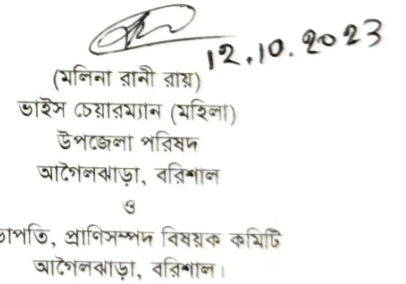 12.10.2023
(মলিনা রানী রায়)
ভাইস চেয়ারম্যান (মহিলা)
উপজেলা পরিষদ
আগৈলঝাড়া, বরিশাল
ও
প্রাণিসম্পদ বিষয়ক কমিটি
আগৈলঝাড়া, বরিশাল।